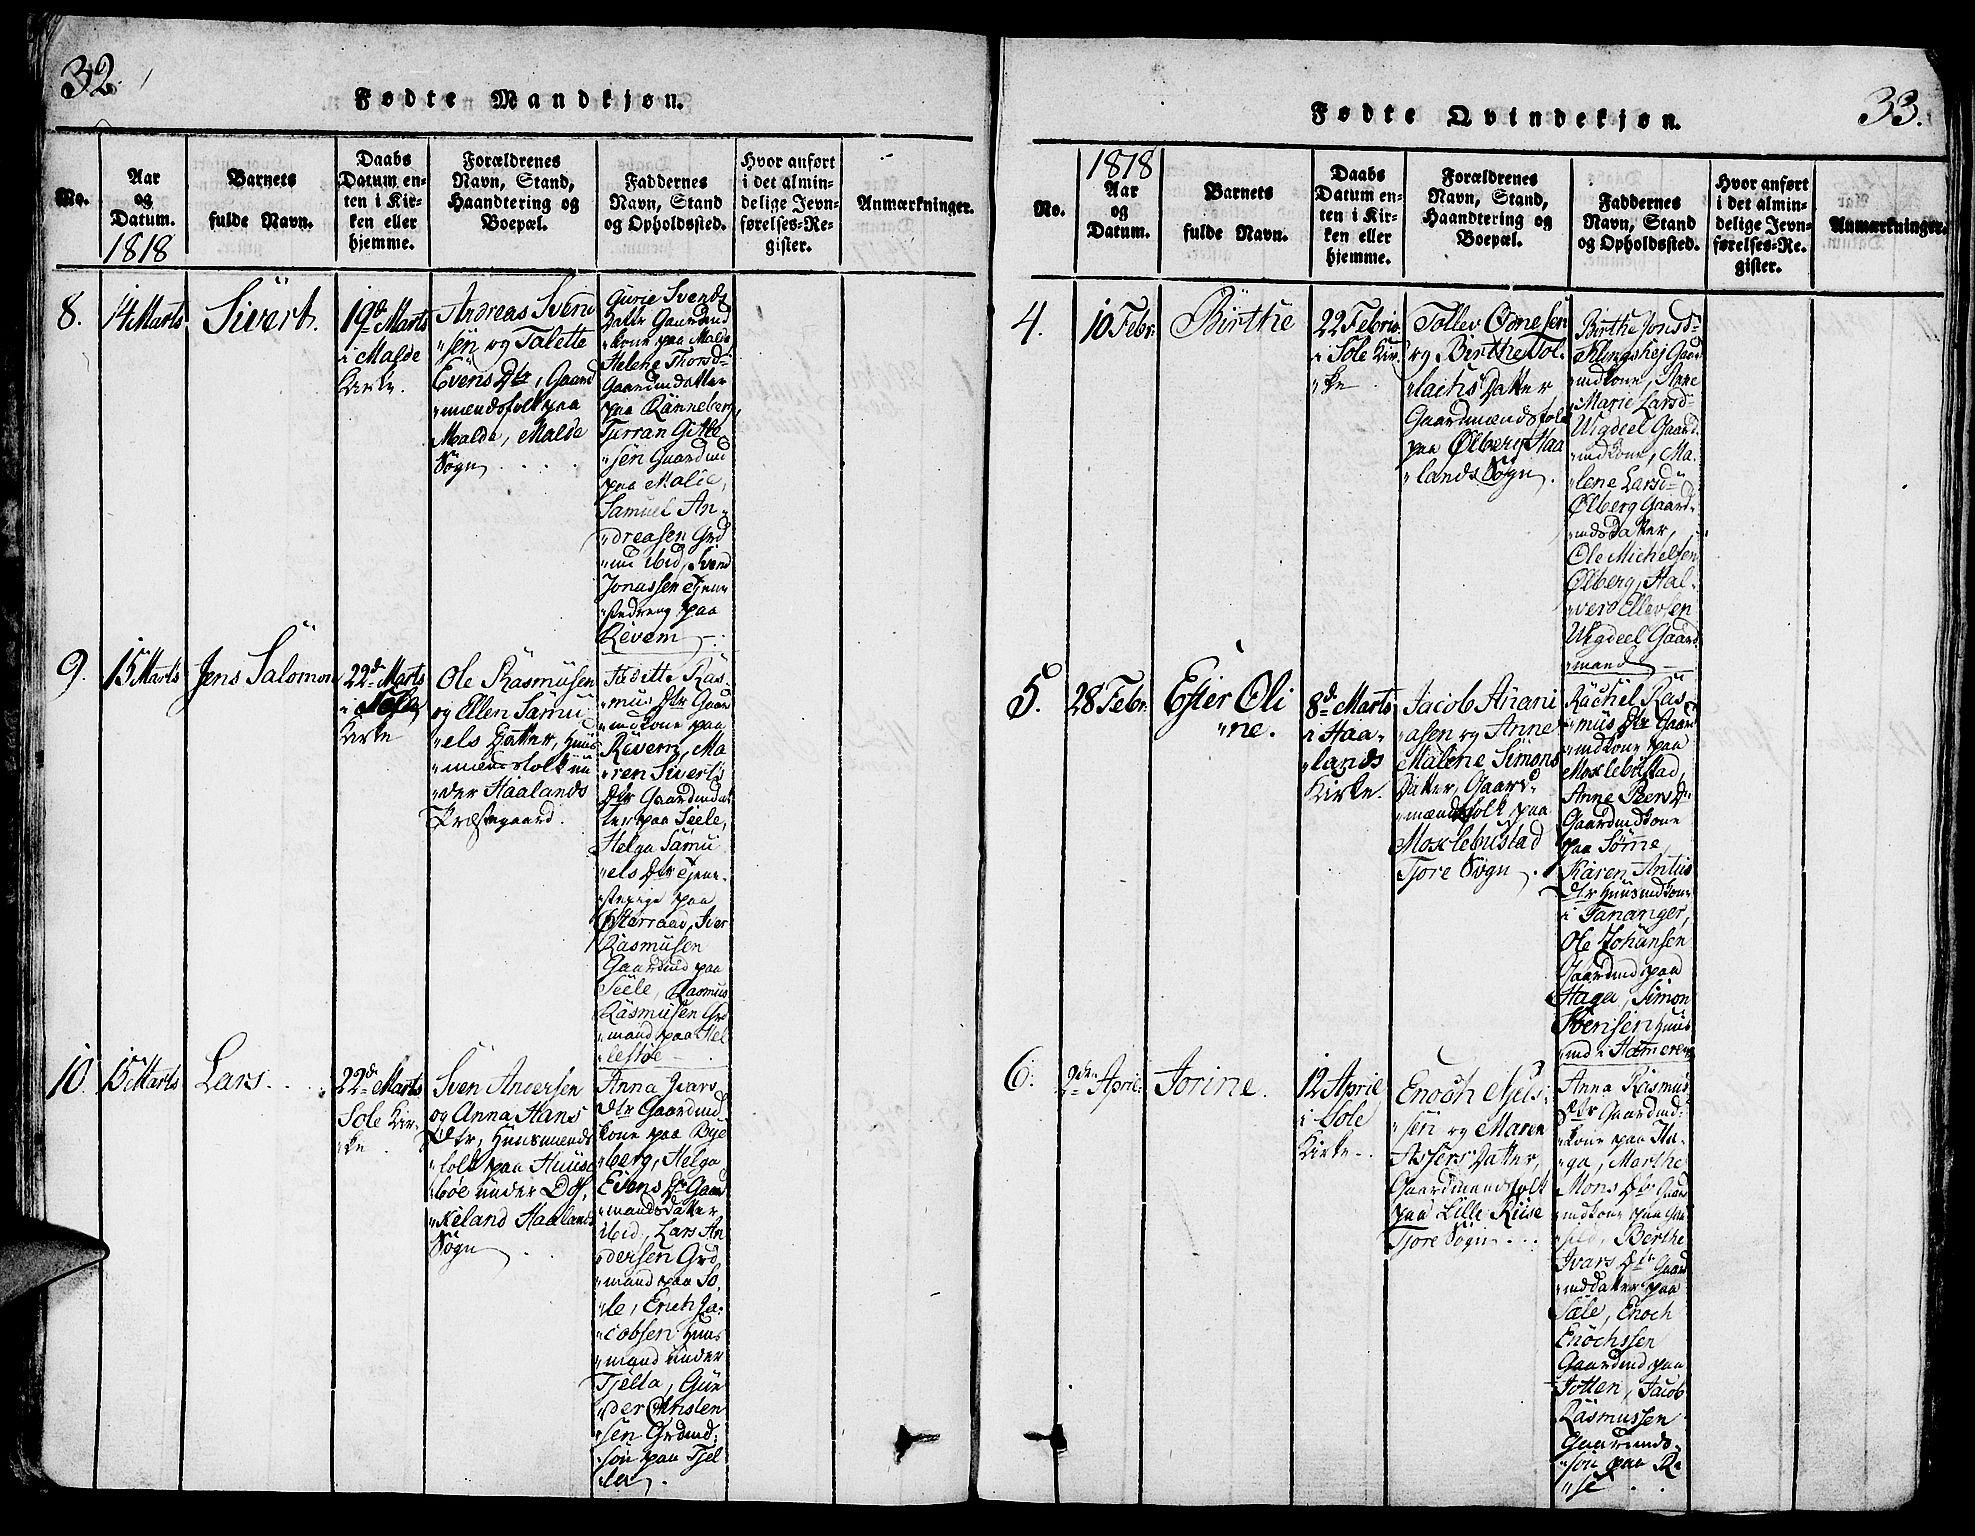 32.
Fødte Mandkjøn.
No.
Aar
og
Datum.
1818
Barnets
fulde Navn.
Daabs
Datum en-
ten i Kir-
ken eller
hjemme.
Forældrenes
Navn, Stand,
Haandtering og
Boepæl.
Faddernes
Navn, Stand
og Opholdssted.
Hvor anført
i det almin-
delige Jevn-
førelses-Re-
gister.
Anmærkninger.
8.
14 Marts
Sivert.
19d Marts
i Malde
Kirke.
Andreas Svend
sen og Talette
Evens Dtr, Gaard
mændsfolk paa
Malde, Malde
Sogn
Gurie Svends
Datter Gaardmd
kone paa Malde
Helene Thorsd
Gaardmdatter
paa Rønneberg
Torran Gitle
sen Gaardmd
paa Malde,
Samuel An-
dreasen Grd
md ibid, Svend
Jonassen tjene
stedreng paa
Revem
9.
15 Marts
Jens Salomon
22d Marts
i Sole
Kirke
Ole Rasmusen
og Ellen Samu
els Datter, Huus
mændsfolk un
der Haalands
Præstegaard.
Ras-
mus Dtr Gaar
mdkone paa
Revem, Ma
ren Siverts
Dtr Gaardmdat
ter paa Seele,
Helga Samu
els Dtr tjene-
stepige paa
Iver
Rasmusen
Gaardmd paa
Seele, Rasmus
Rasmusen Gr
mand paa Hel
lestøe
10.
15 Marts
Lars.
22d Marts
Sole Kir-
ke.
Sven Andersen
og Anna Hans
Dtr, Huusmænds
folk paa Huuse
bøe under Døs,
keland Haalands
Sogn
Anna Ivars
Dtr Gaardmd
kone paa Bye
berg, Helga
Evens Dtr Gaar
mandsdatter
ibid, Lars An
dersen Grd
mand paa So,
le, Erich Ja-
cobsen Huus
mand under
Tjelta, Gun
der Christen
sen Grdmd:
søn paa Tjel
ta.
33.
Fødte Qvindekjøn.
No.
1818
Aar
og
Datum.
Barnets
fulde Navn.
Daabs
Datum en-
ten i Kir-
ken eller
hjemme.
Forældrenes
Navn, Stand,
Haandtering og
Boepæl.
Faddernes
Navn, Stand
og Opholdssted.
Hvor anført
i det almin-
delige Jevn-
førelses-Re-
gister.
Anmærkninger.
4.
10 Febr.
Birthe
22 Febr.
i Sole Kir-
ke
Tollev Odnesen
og Birthe Tol-
lachs Datter
Gaardmændsfolk
paa Ølberg Haa
lands Sogn
Birthe Jonsd
Gaard
mdkone, Ane
Marie Larsd
Wigdeel Gaard
mdkone, Ma-
lene Larsd
Ølberg Gaard-
mdsDatter,
Ole Michelsen
Ølberg, Hal-
vers Ellevsen
Wigdeel Gaard
mand
5.
28 Febr.
Ester Oli
ne.
8d Marts
i Haa-
lands
Kirke.
Jacob Anani
asen og Anne
Malene Simons
Datter, Gaard-
mændsfolk paa
Mosslebustad
Tjore Sogn
Rachel Ras
mus Dtr Gaard
mdkone paa
Mosslebustad,
Anne Peers Dr
Gaardmdkone
paa Sømme,
Karen Antus
Dtr Huusmdkone
i Tananger,
Ole Johansen
Gaardmd paa
Haga, Simon
Sörensen Huus
md i Hameren
6.
2den April.
Jorine.
12 April
i Sole
Kirke.
Enoch Njels-
sen og Maren
Assers Datter,
Gaardmændsfolk
paa Lille Risse
Tjore Sogn
Anna Rasmus
Dtr Gaardmd:
kone paa Ha-
ga, Marthe
Mons Dtr Gaar
mdkone paa
Berthe
Ivars Dtr Gaard
mdDatter paa
Sæle, Enoch
Enochssen
Gaardmd paa
Jotten, Jacob
Rasmussen
Gaardmds-
søn paa Ri-
se